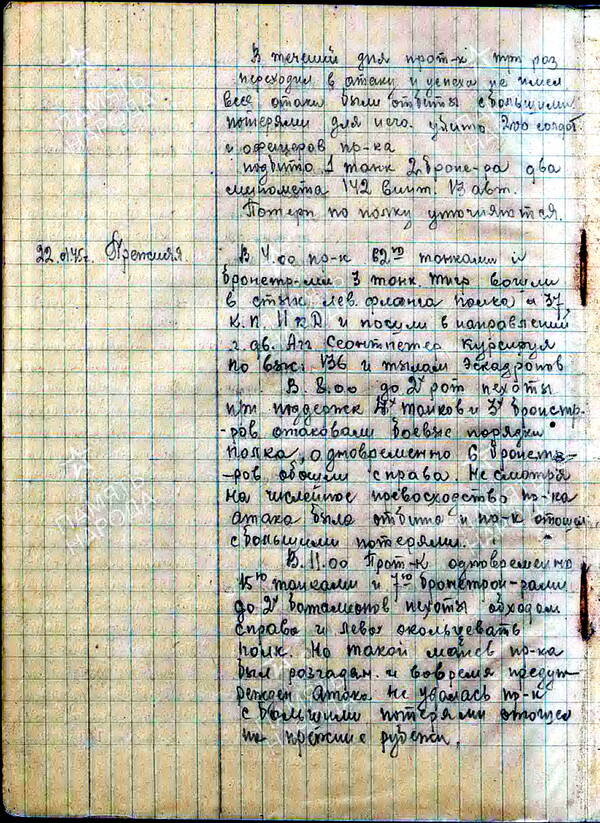 В течений дня прот-к три раз
переходил в атаку и успеха не имел
все атаки были отбиты с большими
потерями для него. убито 200 солдат
и офицеров пр-ка
подбито 1 танк 2 броне-ра два
миномета 142 винт. 13 авт.
Потери по полку уточняются.
22.01.45г. Прежняя.
В 4.00 пр-к 62 танками и
бронетр-ми 3 танк. тигр вошли
в стык лев. фланга полка и 37
К.П. 11 КД и в направлений
г. дв. курсируя
по выс. 136 и тылам эскадронов
В 8.00 до 2х рот пехоты
при поддержк танков и 3х бронетр-
-ров атаковали боевые порядки
полка, одновременно 6 бронетр-
-ров обошли справа. Несмотря
на превосходство пр-ка
атака была отбита и пр-к отошел
с большими потерями.
В 11.00 Прот-к одновременно
15ю танками и 7ю бронетрон-рами
до 2х баталионов пехоты обходом
справа и лева окольцевать
полк. Но такой манев пр-ка
был разгадан. и вовремя предуп-
режден атака не удалась пр-к
с большими потерями отошел
на прежние рубежи.
ПАМЯТЬ
НАРОДА
ПАМЯТЬ
НАРОДА